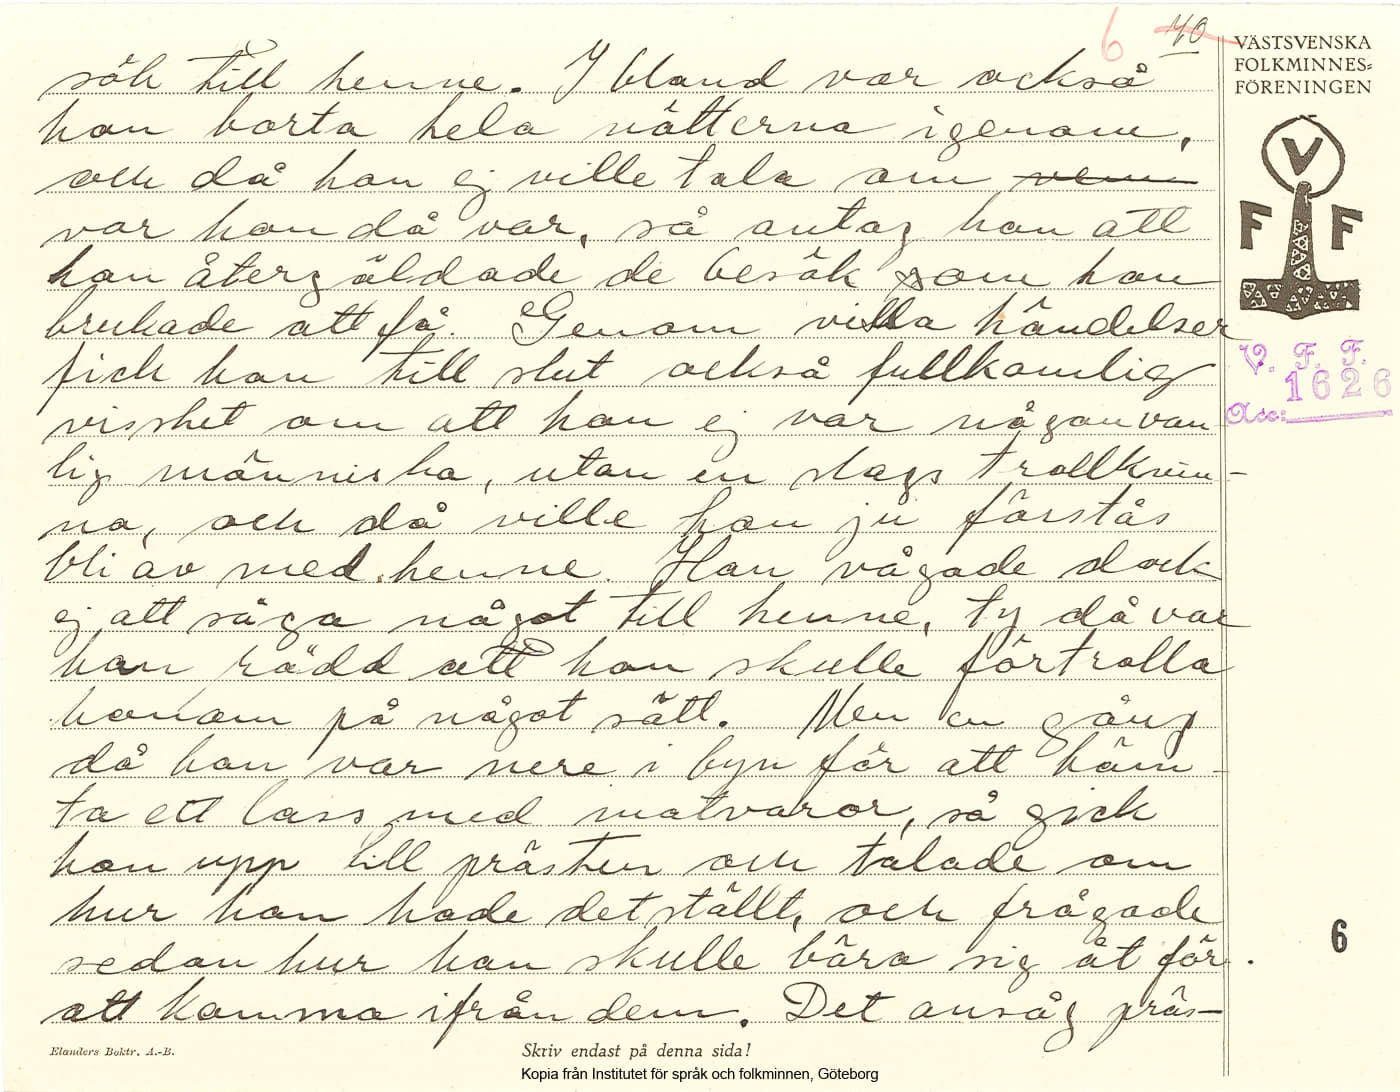 6 40
VÄSTSVENSKA
FOLKMINNES=
FÖRENINGEN
V
F F
V. F. F.
1626
Acc:
sök till henne. I bland var också
hon borta hela nätterna igenom,
och då hon ej ville tala om vem
var hon då var, så antag han att
hon återgäldade de besök som hon
brukade att få. Genom vissa händelser
fick han till slut också fullkomlig
visshet om att hon ej var någon van
lig människa, utan en slags trollkvin-
na, och då ville han ju förstås
bli av med henne. Han vågade dock
ej att säga något till henne, ty då var
han rädd att hon skulle förtrolla
honom på något sätt. Men en gång
då han var nere i byn för att häm-
ta ett lass med matvaror, så gick
han upp till prästen och talade om
hur han hade det ställt, och frågade
sedan hur han skulle bära sig åt för
att komma ifrån dem. Det ansåg präs-
6
Elanders Boktr. A.-B.
Skriv endast på denna sida!
Kopia från Institutet för språk och folkminnen, Göteborg